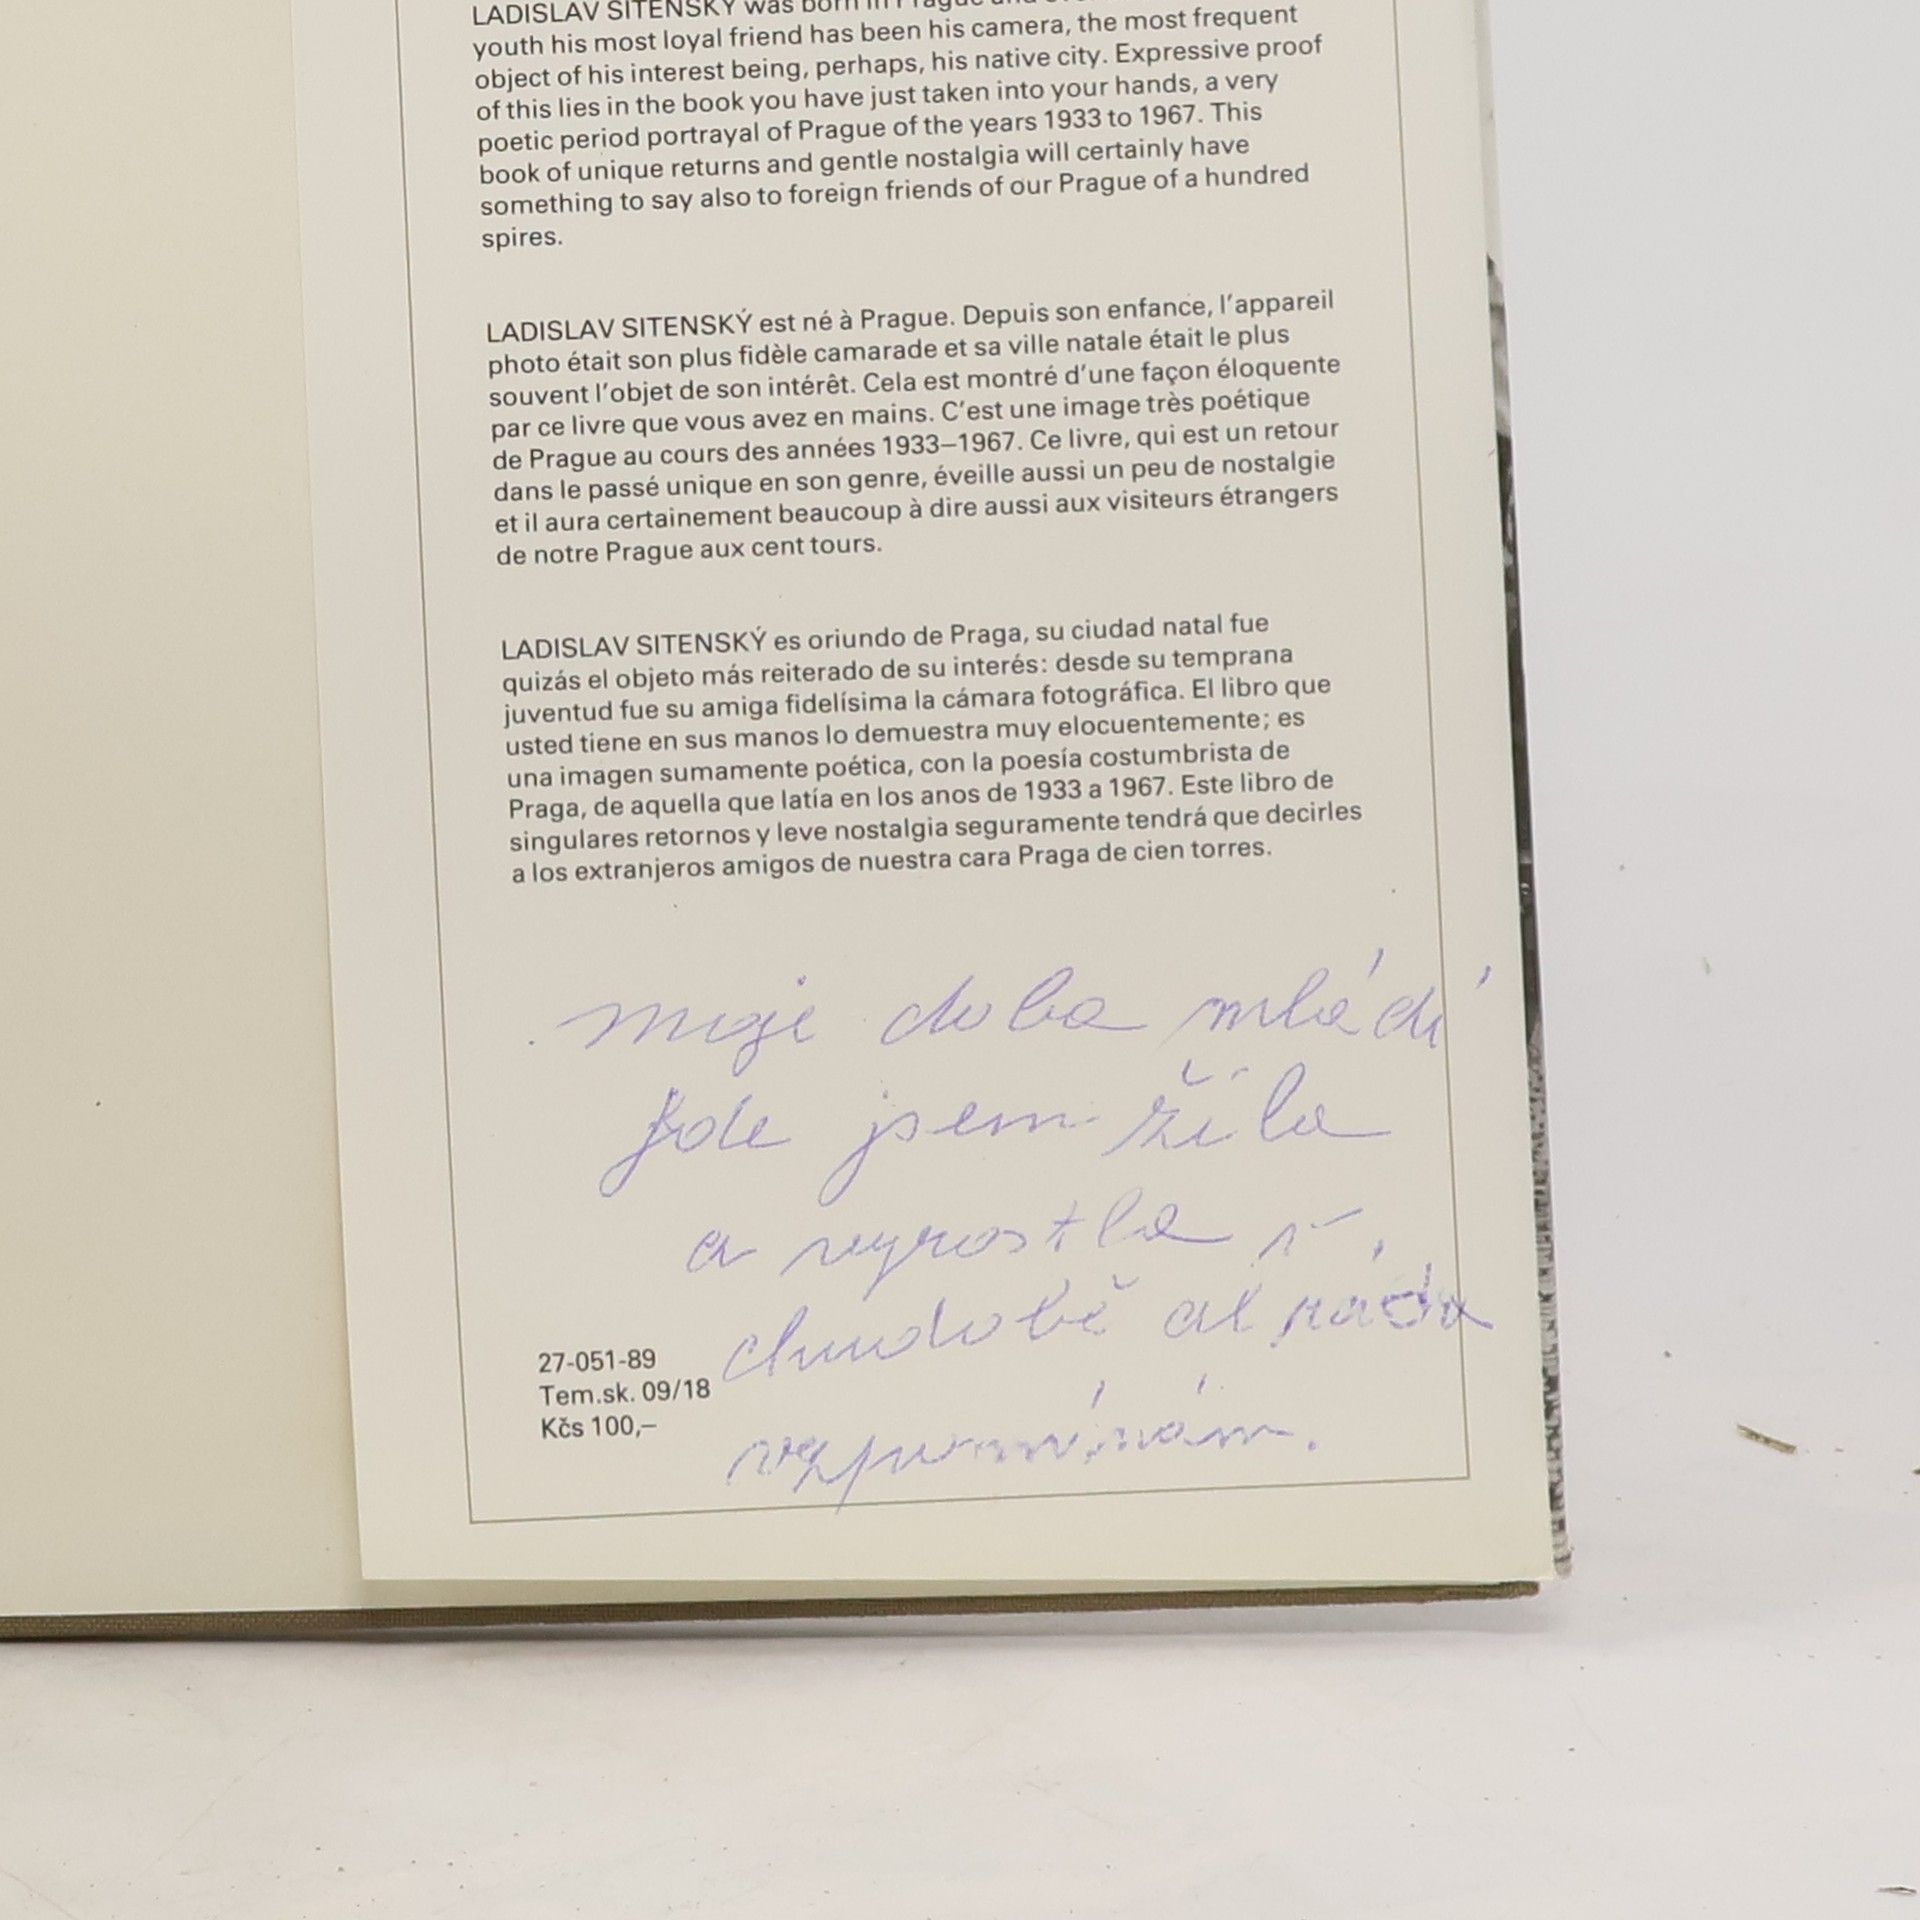 LADISLAV SITENSKÝ was born in Prague and
youth his most loyal friend has been his camera, the most frequent
object of his interest being, perhaps, his native city. Expressive proof
of this lies in the book you have just taken into your hands, a very
poetic period portrayal of Prague of the years 1933 to 1967. This
book of unique returns and gentle nostalgia will certainly have
something to say also to foreign friends of our Prague of a hundred
spires.
LADISLAV SITENSKÝ est né à Prague. Depuis son enfance, l'appareil
photo était son plus fidèle camarade et sa ville natale était le plus
souvent l'objet de son intérêt. Cela est montré d'une façon éloquente
par ce livre que vous avez en mains. C'est une image très poétique
de Prague au cours des années 1933–1967. Ce livre, qui est un retour
dans le passé unique en son genre, éveille aussi un peu de nostalgie
et il aura certainement beaucoup à dire aussi aux visiteurs étrangers
de notre Prague aux cent tours.
LADISLAV SITENSKÝ es oriundo de Praga, su ciudad natal fue
quizás el objeto más reiterado de su interés: desde su temprana
juventud fue su amiga fidelísima la cámara fotográfica. El libro que
usted tiene en sus manos lo demuestra muy elocuentemente; es
una imagen sumamente poética, con la poesía costumbrista de
Praga, de aquella que latía en los anos de 1933 a 1967. Este libro de
singulares retornos y leve nostalgia seguramente tendrá que decirles
a los extranjeros amigos de nuestra cara Praga de cien torres.
moje doba mládí
kde jsem žila
a vyrostla v
chudobě al ráda
vzpomínám.
27-051-89
Tem.sk. 09/18
Kčs 100,–